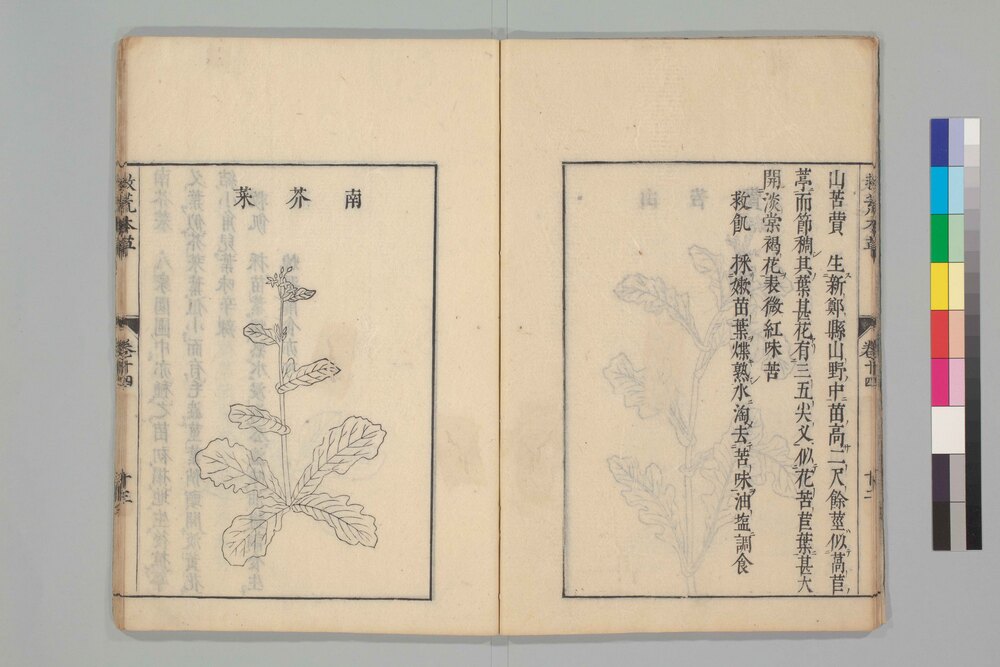 山苦蕒　生新鄭縣山野中苗高二尺餘莖似萵苣
葶而節稠其葉甚花有三五尖又似花苦苣葉甚大
開淡棠褐花表微紅味苦
救飢　採嫩苗葉煠熟水淘去苦味油塩調食
救荒本草
卷十四
十二
南芥菜
救荒本草
卷十四
十三